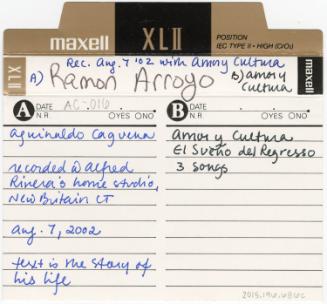 maxell XLII POSITION
IEC TYPE II • HIGH (CrO2)
Rec. Aug. 7 '02 with Amor y Cultura
A) Ramon Arroyo B) amor y
Cultura
XLII
maxell
A DATE AC-016
N.R. OYES ONO
aguinaldo Caguena
recorded @ Alfred
Rivera's home studio,
New Britain CT
aug. 7, 2002
text is the story of
his life
B DATE
N.R. OYES ONO
Amor y Cultura
El Sueño del Regresso
3 songs
2015.196.686c